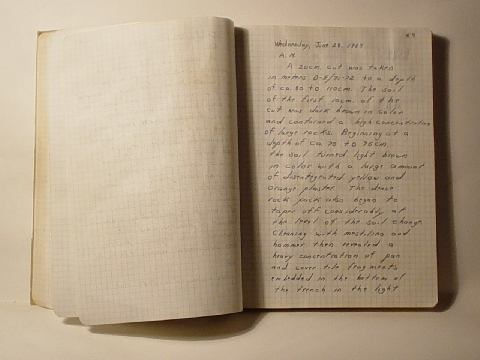 Wednesday, June 28, 1967
A.M.
A 20cm. cut was taken
in meters to a depth
of ca. 80 to 110cm. The soil
of the first 10cm. of the
cut was dark brown in color
and contained a high concentration
of large rocks. Beginning at a
depth of ca. 90 to 95cm.
the soil turned light brown
in color with a large amount
of disintegrated yellow and
orange plaster. The dense
rock pack also began to
taper off considerably at
the level of the soil change.
Cleaning with and
hammer then revealed a
heavy concentration of pan
and cover tile fragments
embedded in the bottom of
the trench in the light